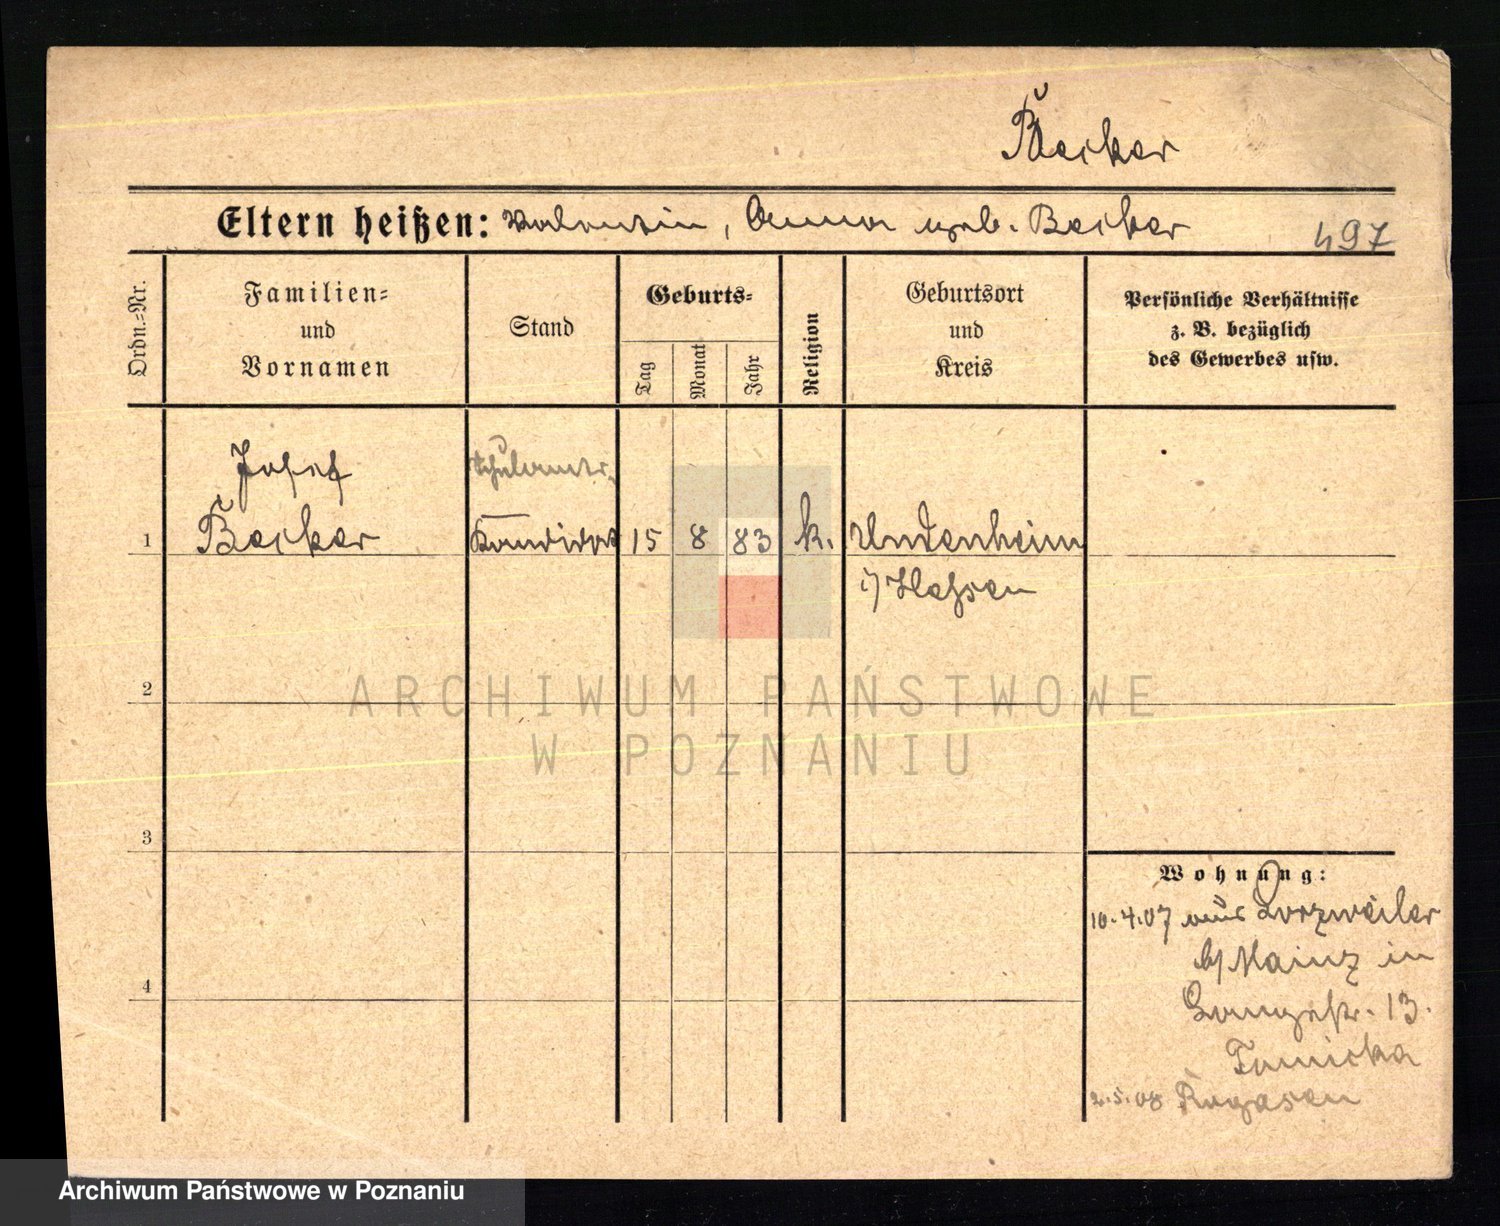 Becker
Eltern heißen: Valentin, Anna geb. Becker
497
Ordn.-Nr.
Familien-
und
Vornamen
Stand
Geburts-
Tag
Monat
Jahr
Religion
Geburtsort
und
Kreis
Persönliche Verhältnisse
z. B. bezüglich
des Gewerbes usw.
Josef
Schulamts-
1 Becker Kandidat 15 8 83 k. Undenheim
i/ Hessen
2
ARCHIWUM PAŃSTWOWE
W POZNANIU
3
Wohnung:
10.4.07 aus Lörzweiler
b/ Mainz in
4
Langestr. 13.
Tomicka
2.5.08 Rogasen
Archiwum Państwowe w Poznaniu